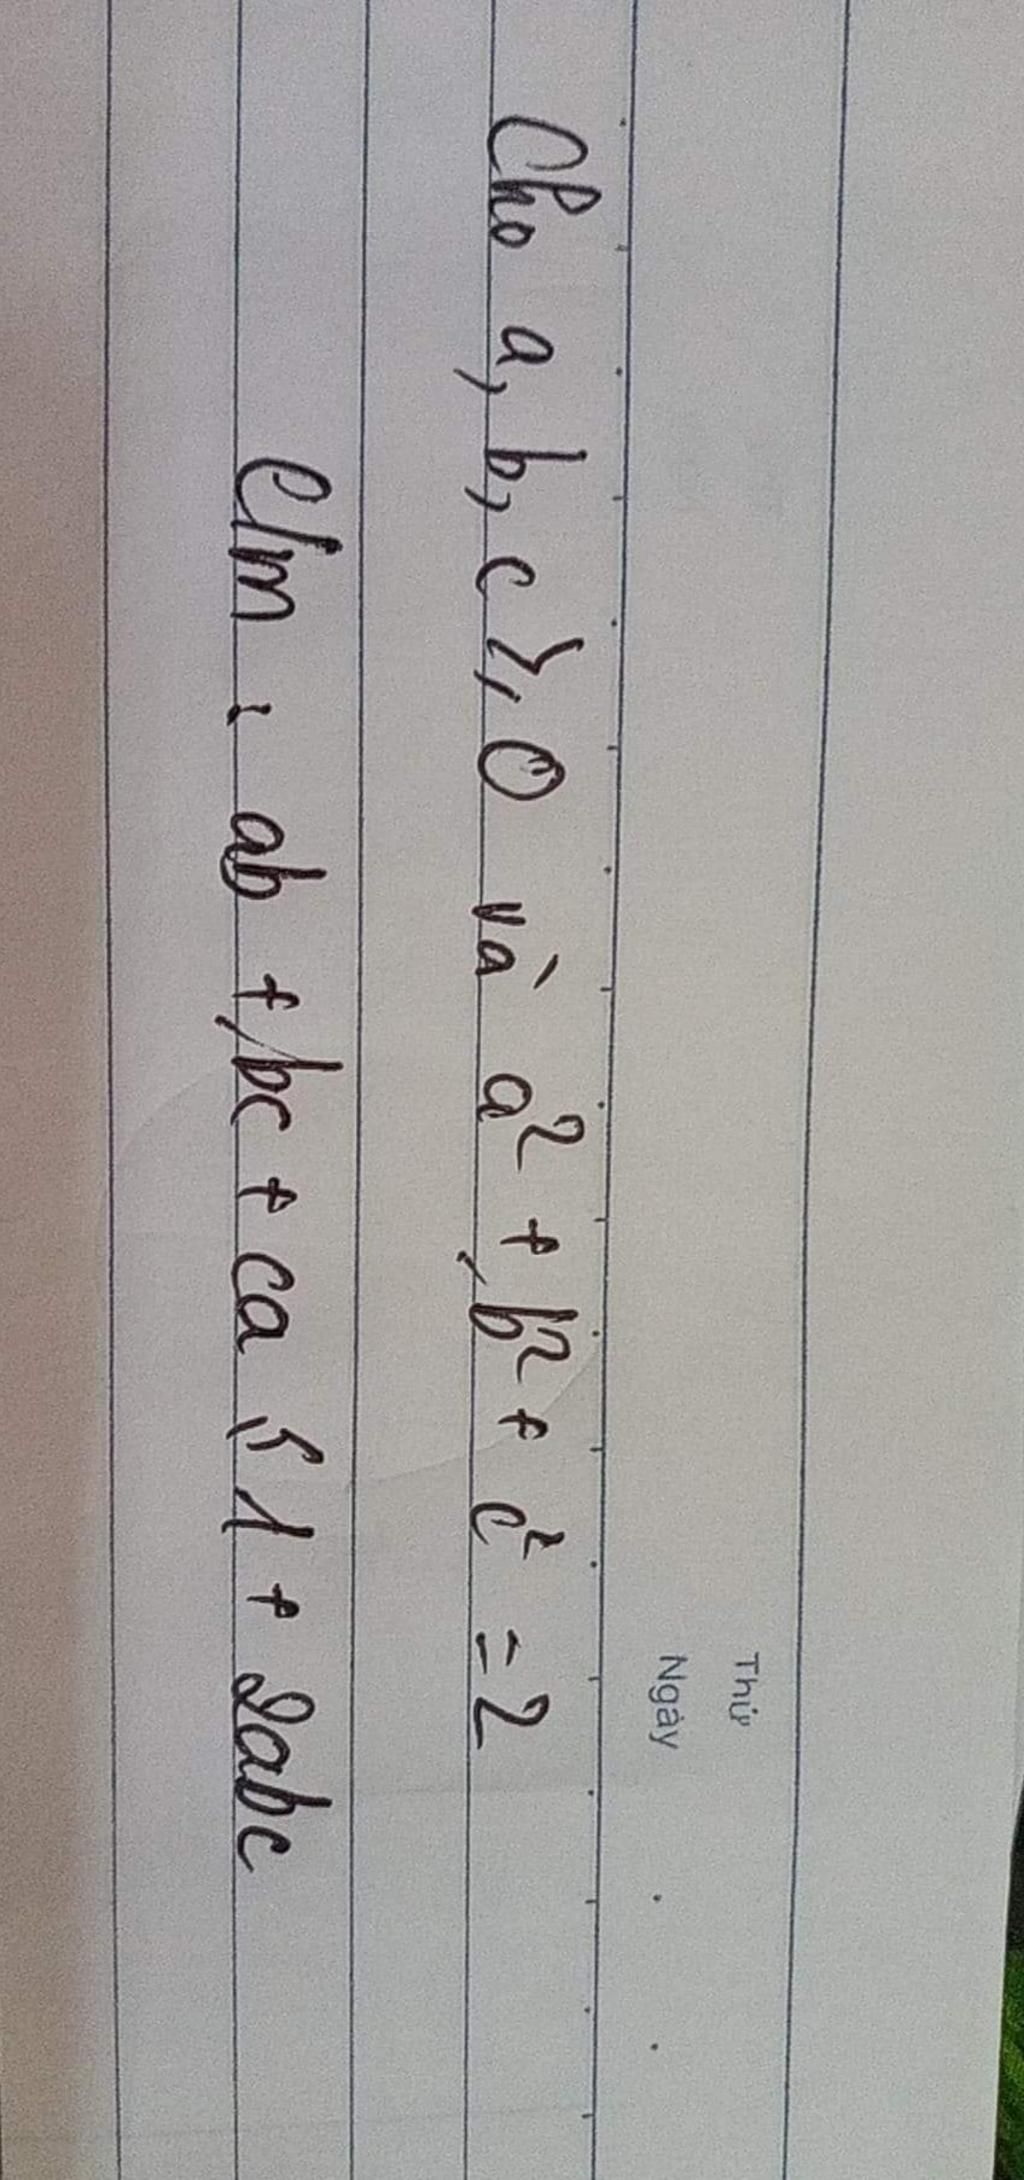 Thứ
Ngày
Cho a, b, c ⩾ 0 và a² + b² + c² = 2
C/m : ab + bc + ca ⩽ 1 + 2abc